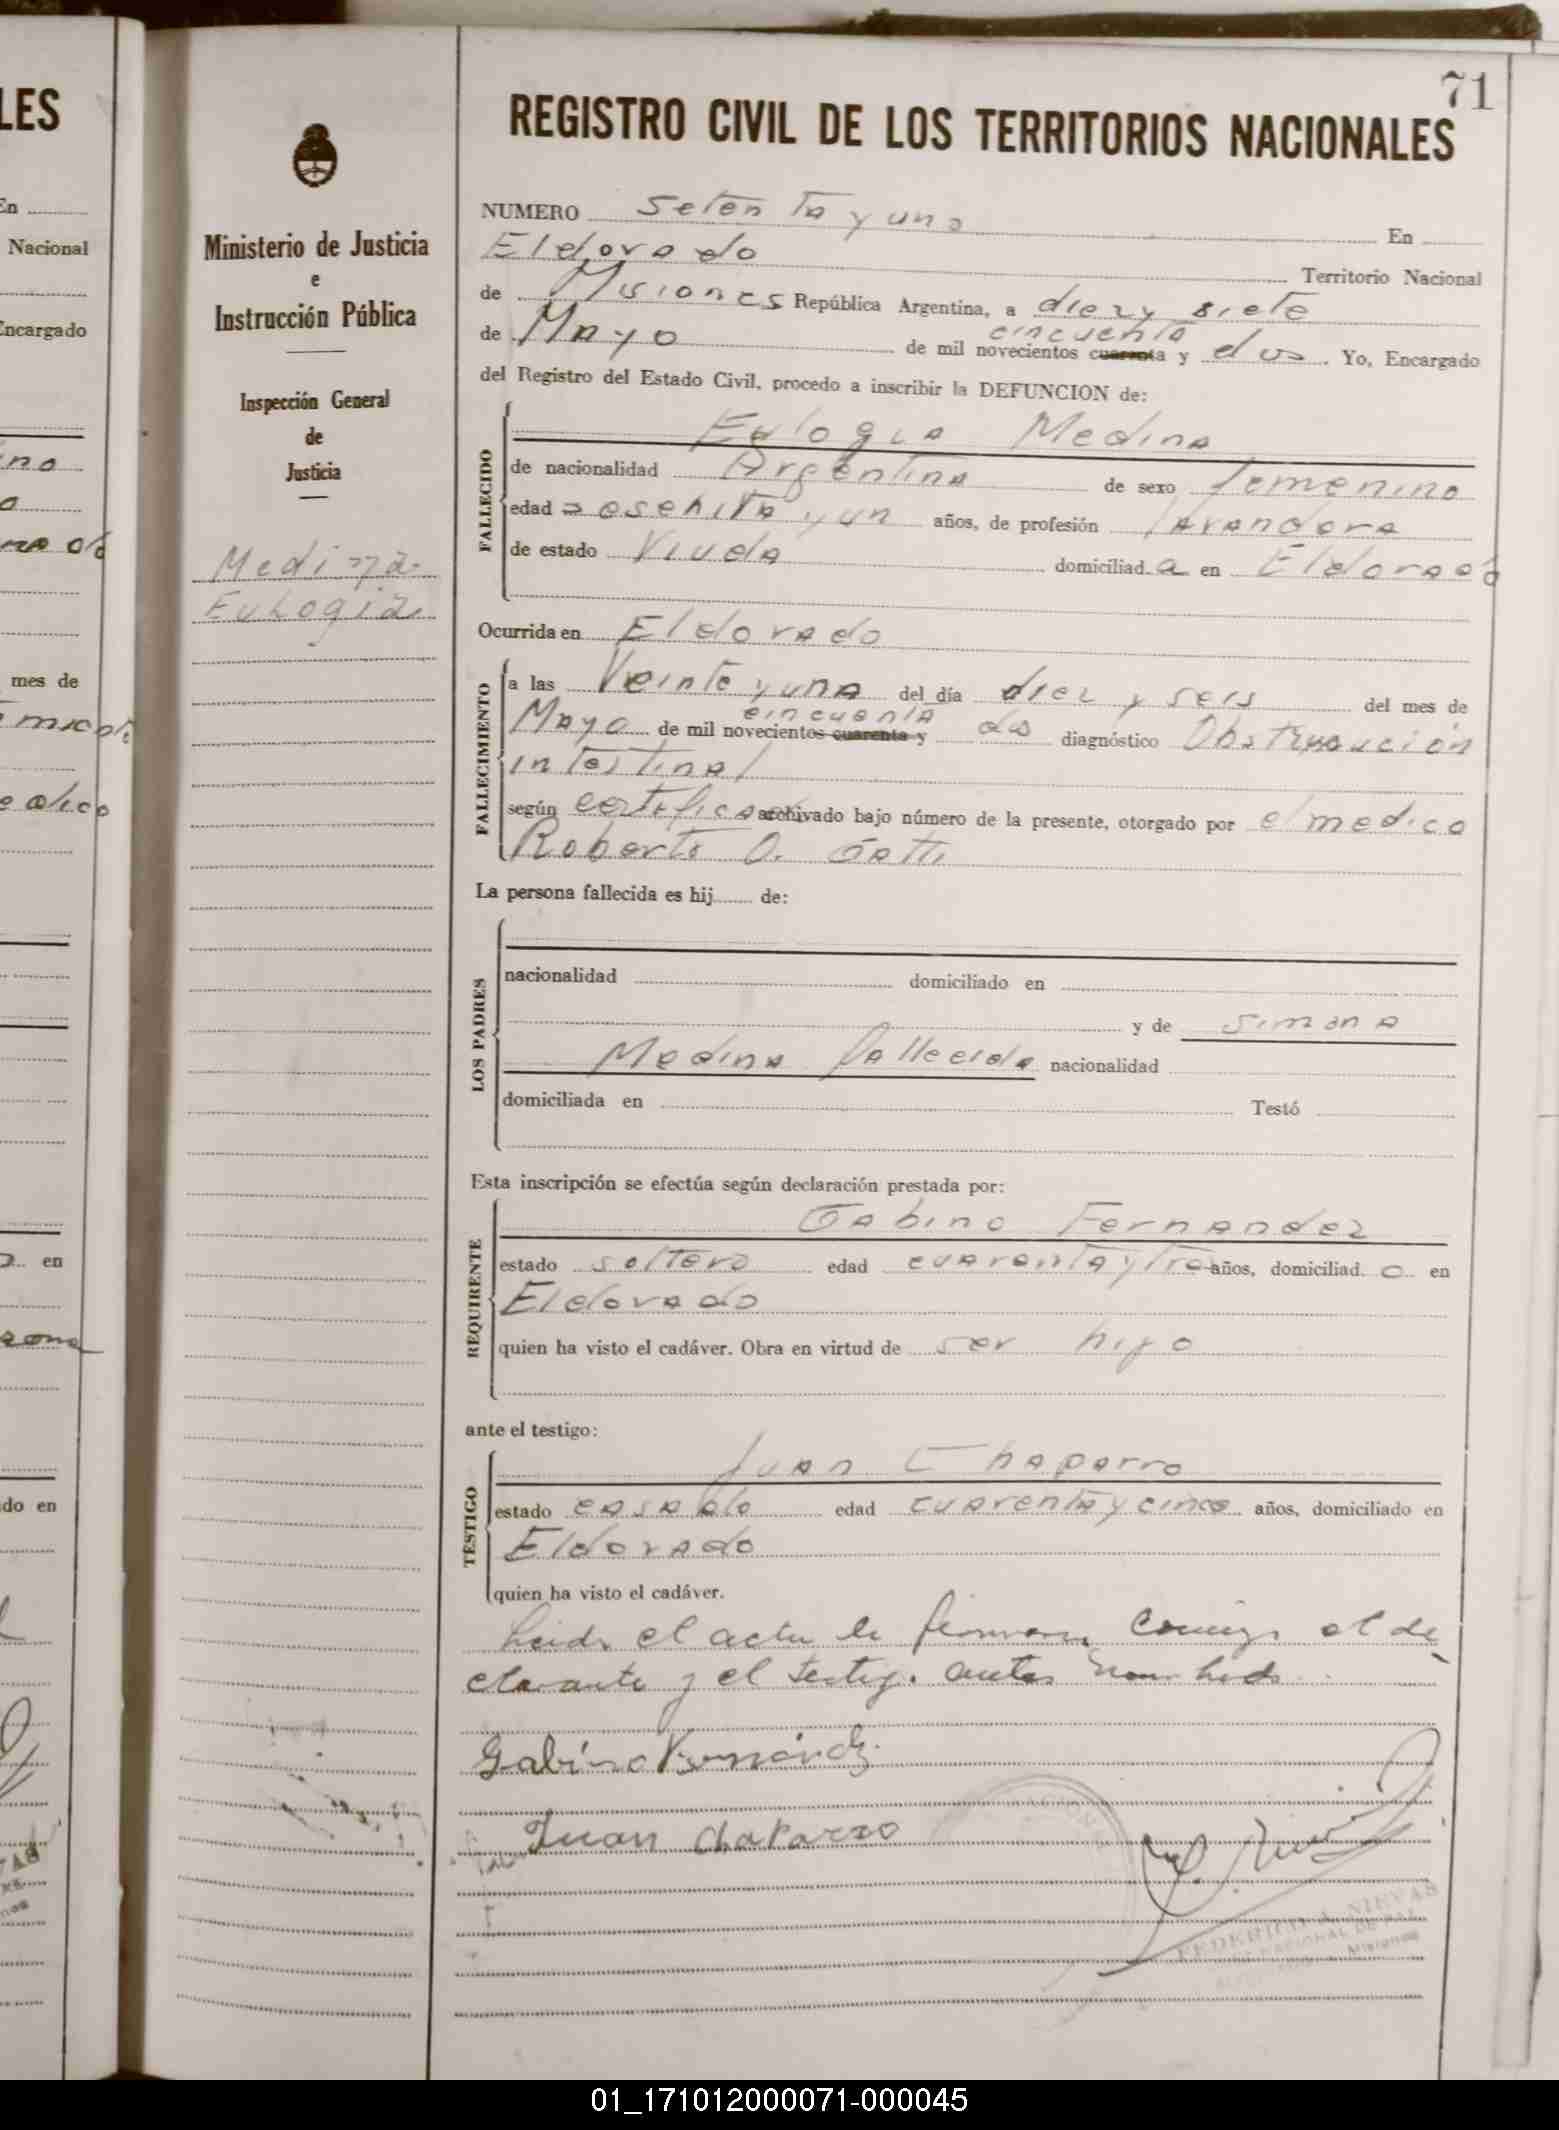 LES
En
Nacional
Encargado
mes de
en
do en
Ministerio de Justicia
e
Instrucción Pública
Inspección General
de
Justicia
Medina
Eulogia
71
REGISTRO CIVIL DE LOS TERRITORIOS NACIONALES
NUMERO Setenta y uno En
Eldorado Territorio Nacional
de Misiones República Argentina, a diez y siete
de Mayo de mil novecientos cuarenta cincuenta y dos. Yo, Encargado
del Registro del Estado Civil, procedo a inscribir la DEFUNCION de:
FALLECIDO
Eulogia Medina
de nacionalidad Argentina de sexo femenino
edad sesenita y un años, de profesión lavandera
de estado Viuda domiciliad a en Eldorado
Ocurrida en Eldorado
FALLECIMIENTO
a las Veinte y una del día diez y seis del mes de
Mayo de mil novecientos cuarenta y cincuenta dos diagnóstico Obstrucción
intestinal
según certificado archivado bajo número de la presente, otorgado por el medico
Roberto O. Gatti
La persona fallecida es hij de:
LOS PADRES
nacionalidad domiciliado en
y de Simona
Medina fallecida nacionalidad
domiciliada en Testó
Esta inscripción se efectúa según declaración prestada por:
REQUIRENTE
Gabino Fernandez
estado soltero edad cuarenta y tres años, domiciliad o en
Eldorado
quien ha visto el cadáver. Obra en virtud de ser hijo
ante el testigo:
TESTIGO
Juan Chaparro
estado casado edad cuarenta y cinco años, domiciliado en
Eldorado
quien ha visto el cadáver.
Leida el acta la firmaron conmigo el de
clarante y el testigo antes nombrado
Gabino Fernández
Juan Chaparro
FEDERICO A. NIEVAS
NACIONAL DE PAZ
Misiones
01_171012000071-000045